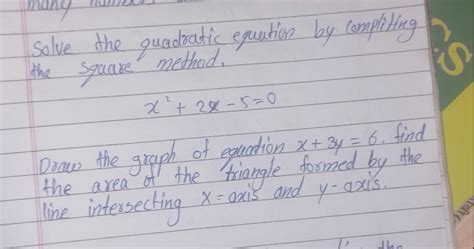 many numbers
Solve the quadratic equation by complitting
the square method.
x² + 2x - 5 = 0
Draw the graph of equation x + 3y = 6. find
the area of the triangle formed by the
line intersecting X-axis and y-axis.